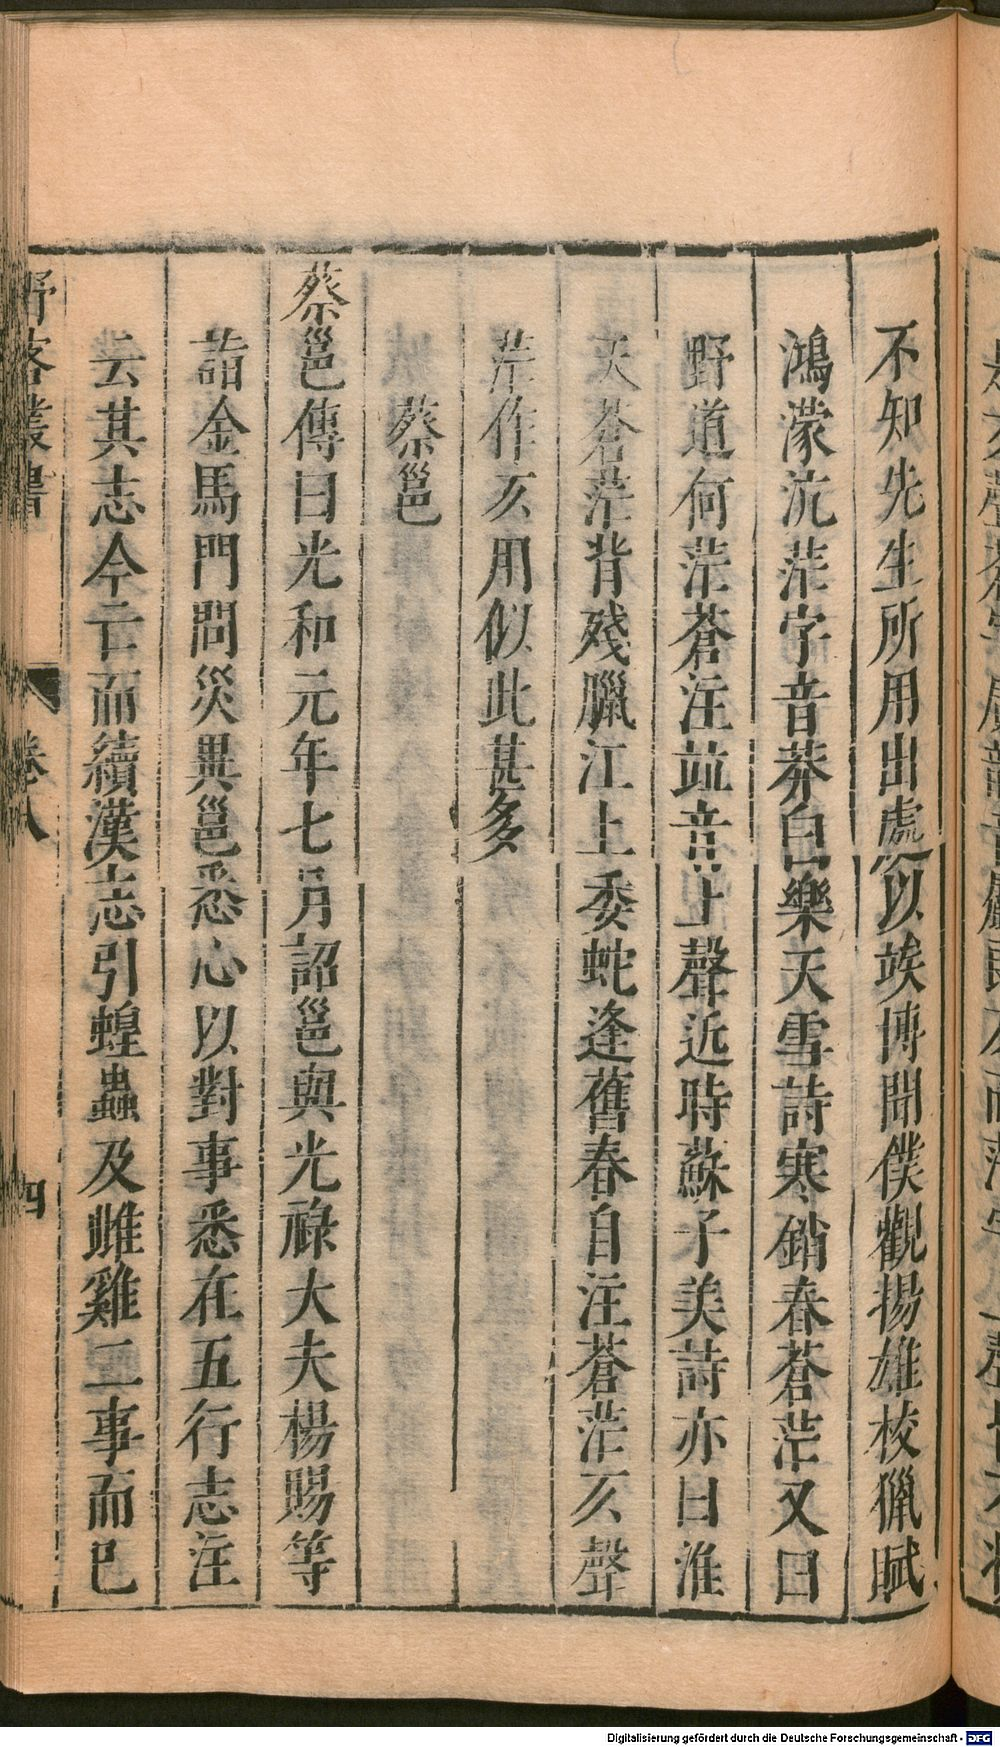 不知先生所用出處以竢博聞僕觀揚雄校獵賦
鴻濛沆茫字音莽白樂天雪詩寒銷春蒼茫又曰
野道何茫蒼注竝音上聲近時蘇子美詩亦曰淮
天蒼茫背殘臘江上委蛇逢舊春自注蒼茫仄聲
茫作仄用似此甚多
蔡邕
蔡邕傳曰光和元年七月詔邕與光祿大夫楊賜等
詣金馬門問災異邕悉心以對事悉在五行志注
云其志今亡而續漢志引蝗蟲及雌雞二事而已
野客叢書
卷八
四
Digitalisierung gefördert durch die Deutsche Forschungsgemeinschaft - DFG